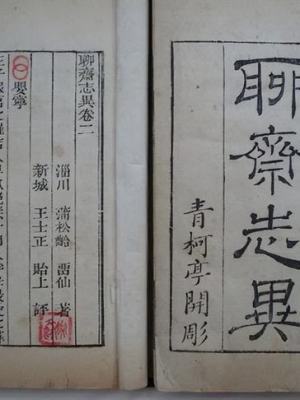 聊齋志異
青柯亭開彫
聊齋志異卷二
淄川 蒲松齡 畱仙 著
新城 王士正 貽上 評
嬰寧